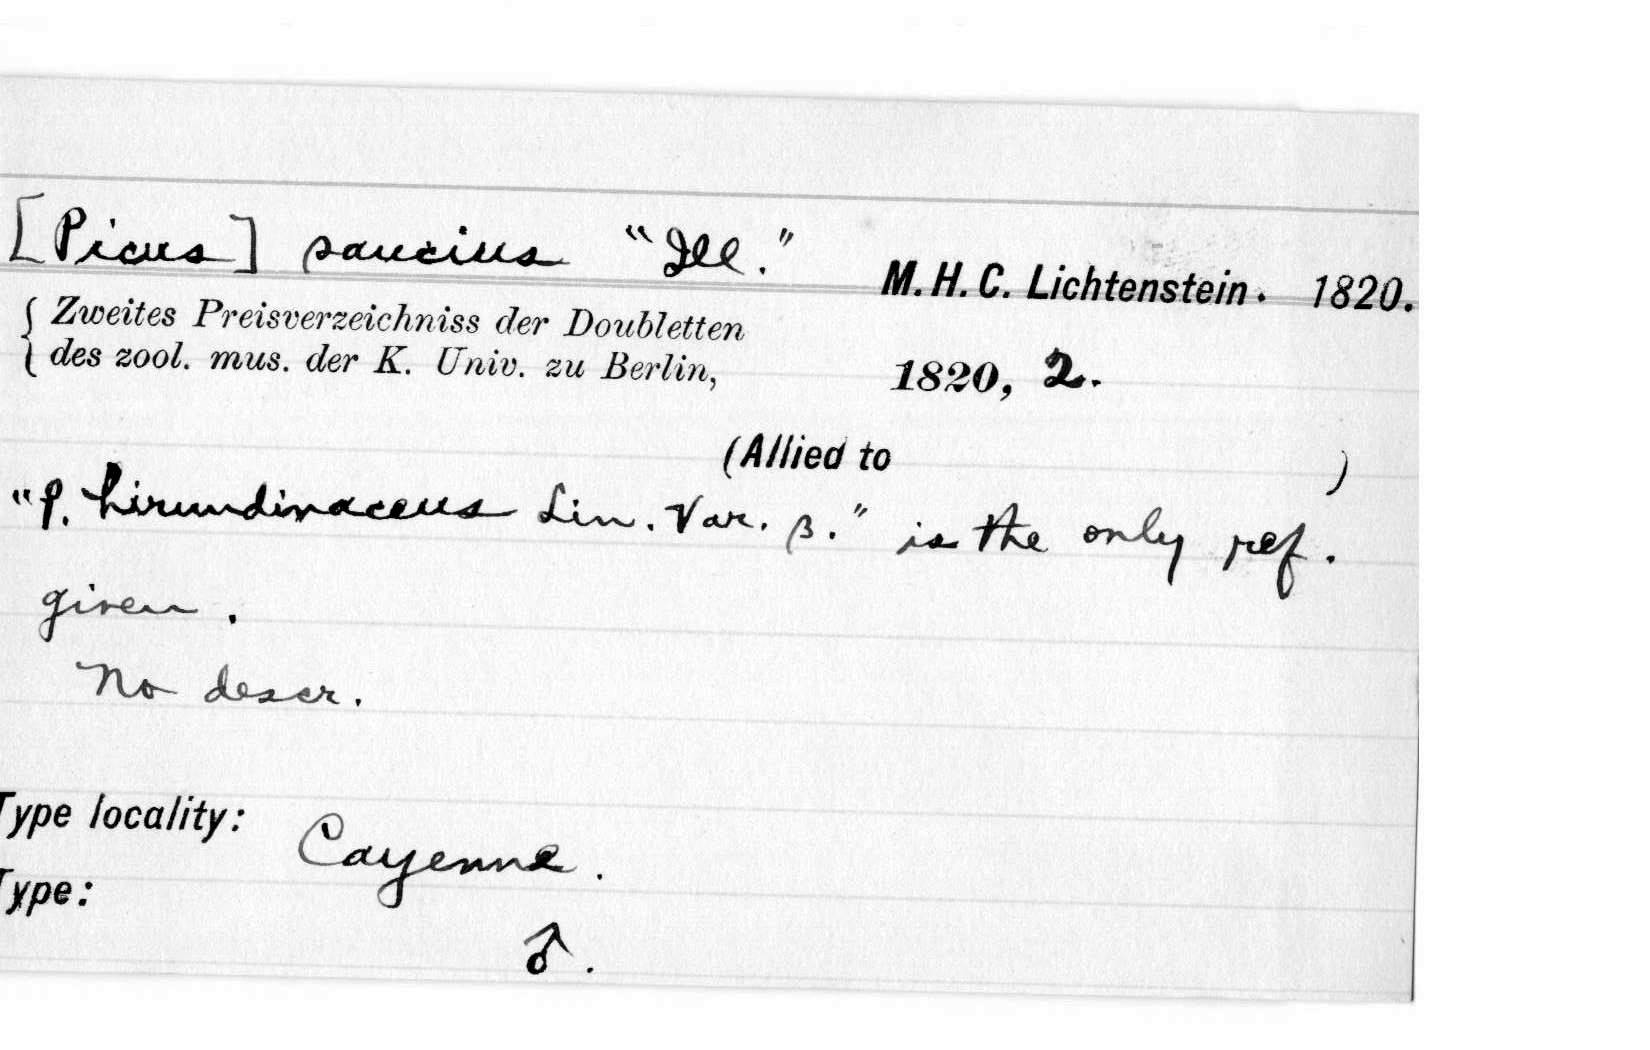 [Picus] saucius "Ill." M. H. C. Lichtenstein. 1820.
{ Zweites Preisverzeichniss der Doubletten
{ des zool. mus. der K. Univ. zu Berlin, 1820, 2.
(Allied to )
"P. hirundinaceus Lin. Var. β." is the only ref.
given.
No descr.
Type locality: Cayenne.
Type:
♂.